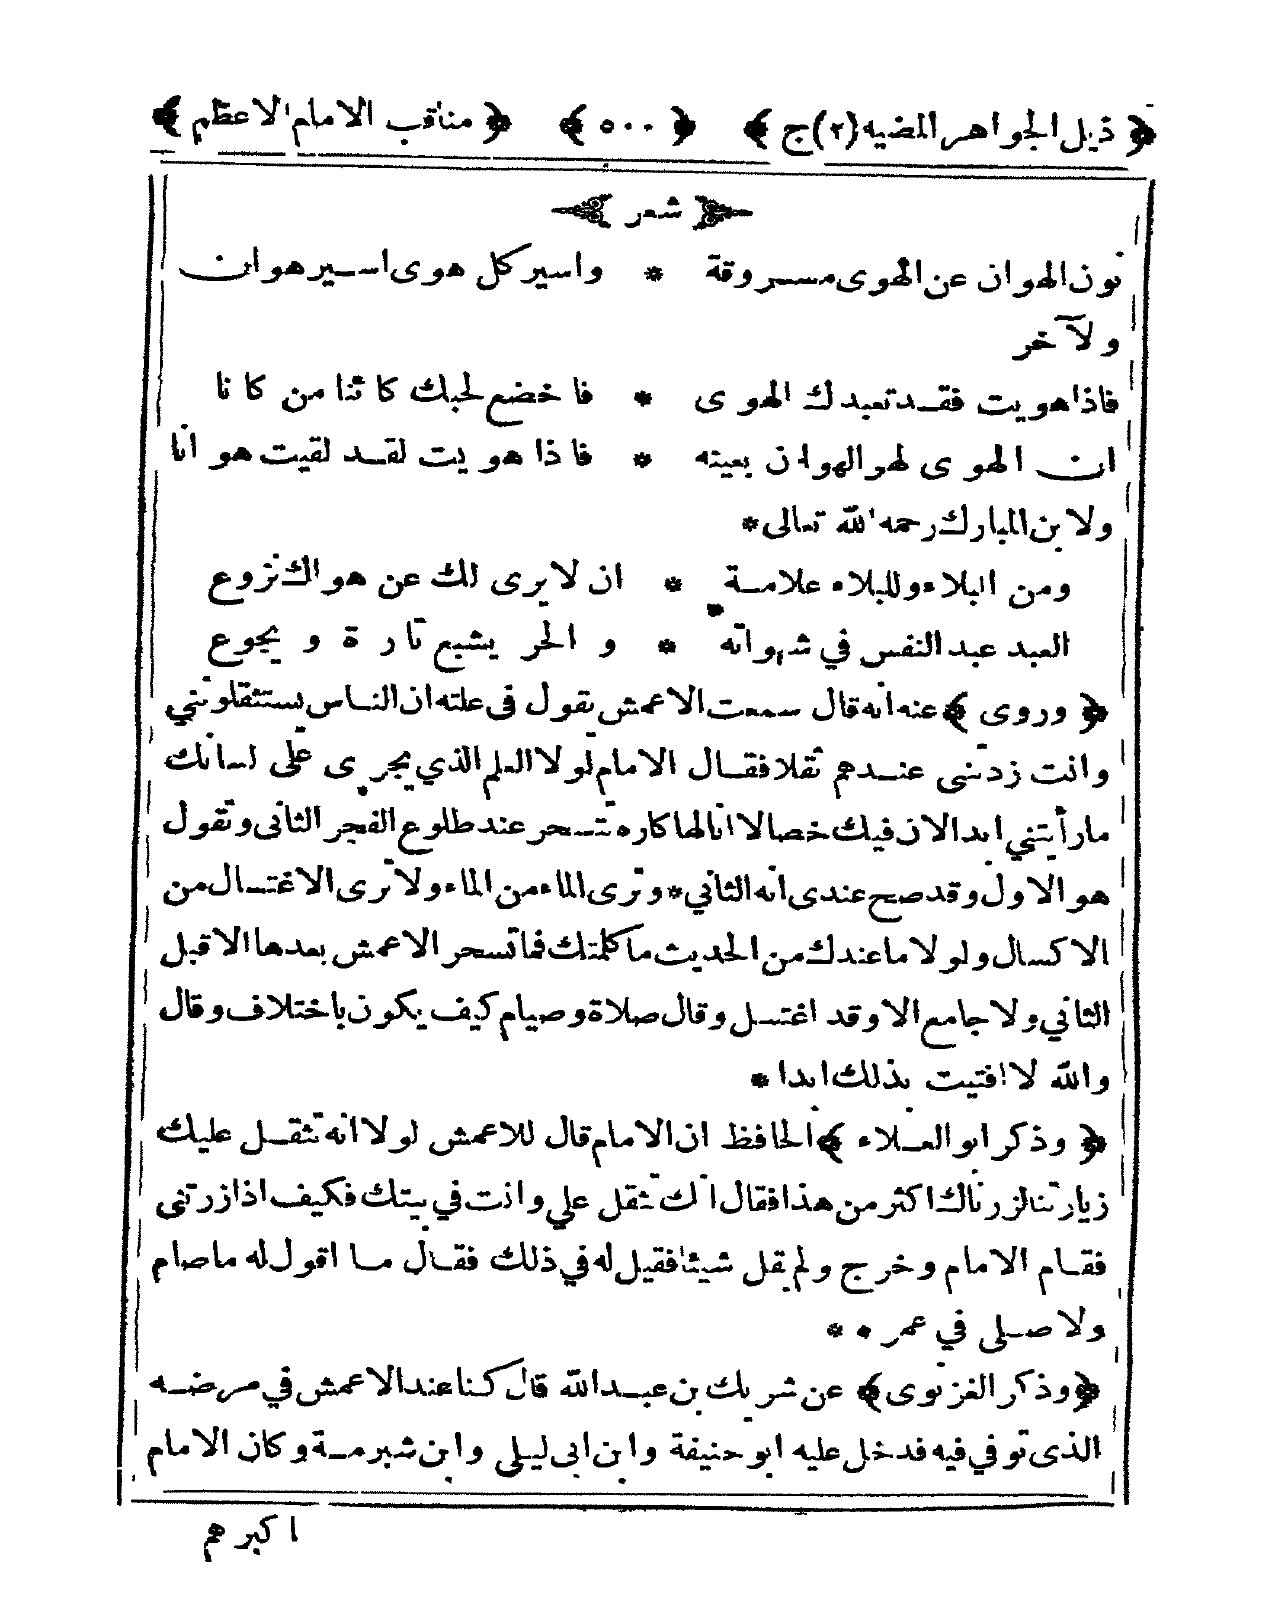 ﴿ ذيل الجواهر المضيه (٢) ج ﴾ ﴿ ٥٠٠ ﴾ ﴿ مناقب الامام الاعظم ﴾
﴿ شعر ﴾
نون الهوان عن الهوى مسروقة * واسير كل هوى اسير هوان
ولآخر
فاذا هويت فقد تعبدك الهوى * فاخضع لحبك كائنا من كانا
ان الهوى لهو الهوان بعينه * فاذا هويت لقد لقيت هوانا
ولابن المبارك رحمه الله تعالى *
ومن البلاء وللبلاء علامة * ان لا يرى لك عن هواك نزوع
العبد عبد النفس في شهواته * والحر يشبع تارة ويجوع
﴿ وروى ﴾ عنه انه قال سمعت الاعمش يقول فى علته ان الناس يستثقلونني
وانت زدتنى عندهم ثقلا فقال الامام لولا العلم الذي يجرى على لسانك
ما رأيتني ابدا لان فيك خصالا انا لها كاره تتسحر عند طلوع الفجر الثانى وتقول
هو الاول وقد صح عندى انه الثاني * وترى الماء من الماء ولا ترى الاغتسال من
الاكسال ولولا ما عندك من الحديث ما كلمتك فما تسحر الاعمش بعدها الا قبل
الثاني ولا جامع الا وقد اغتسل وقال صلاة وصيام كيف يكون باختلاف وقال
والله لا افتيت بذلك ابدا *
﴿ وذكر ابو العلاء ﴾ الحافظ ان الامام قال للاعمش لولا انه تثقل عليك
زيارتنا لزرناك اكثر من هذا فقال انك تثقل علي وانت في بيتك فكيف اذا زرتنى
فقام الامام وخرج ولم يقل شيئا فقيل له في ذلك فقال ما اقول له ما صام
ولا صلى في عمره *
﴿ وذكر الغزنوى ﴾ عن شريك بن عبد الله قال كنا عند الاعمش في مرضه
الذى توفي فيه فدخل عليه ابو حنيفة وابن ابى ليلى وابن شبرمة وكان الامام
اكبرهم